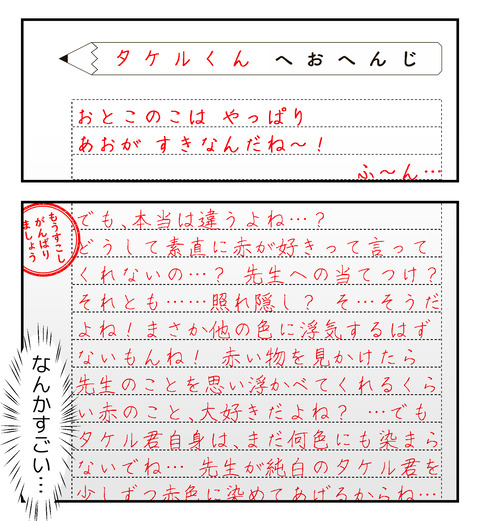 タケルくん へおへんじ
おとこのこは やっぱり
あおが すきなんだね〜！
ふ〜ん…
もうすこし
がんばり
ましょう
でも、本当は違うよね…？
どうして素直に赤が好きって言って
くれないの…？ 先生への当てつけ？
それとも……照れ隠し？ そ…そうだ
よね！まさか他の色に浮気するはず
ないもんね！ 赤い物を見かけたら
先生のことを思い浮かべてくれるくら
い赤のこと、大好きだよね？ …でも
タケル君自身は、まだ何色にも染まら
ないでね… 先生が純白のタケル君を
少しずつ赤色に染めてあげるからね…
なんかすごい…